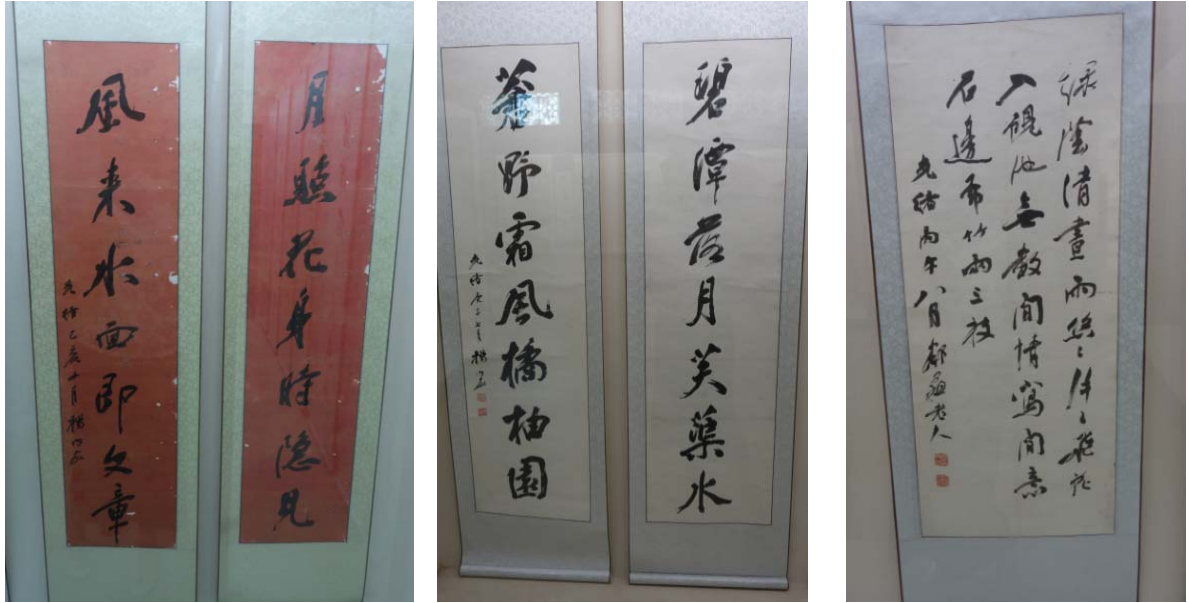 月照花身時隱見
風来水面即文章
光緒己亥十月 楊守敬
碧潭落月芙蕖水
蒼野霜風橘柚園
光緒庚子七月 楊守敬
綠陰清晝雨絲〻陣〻飛花
入硯池無數閒情寫閒意
石邊布竹兩三枝
光緒丙午八月鄰蘇老人